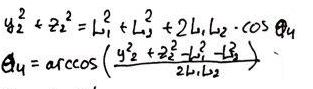 y₂² + z₂² = L₁² + L₂² + 2L₁L₂ · cos θ₄
θ₄ = arccos((y₂² + z₂² - L₁² - L₂²) / 2L₁L₂)